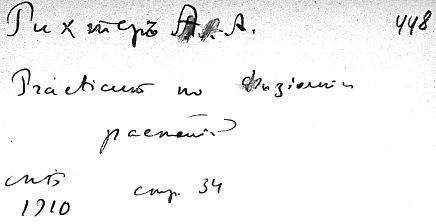 Рихтеръ А. А. 448
Practicum по физиологии
растеній
СПБ
1910 стр. 34